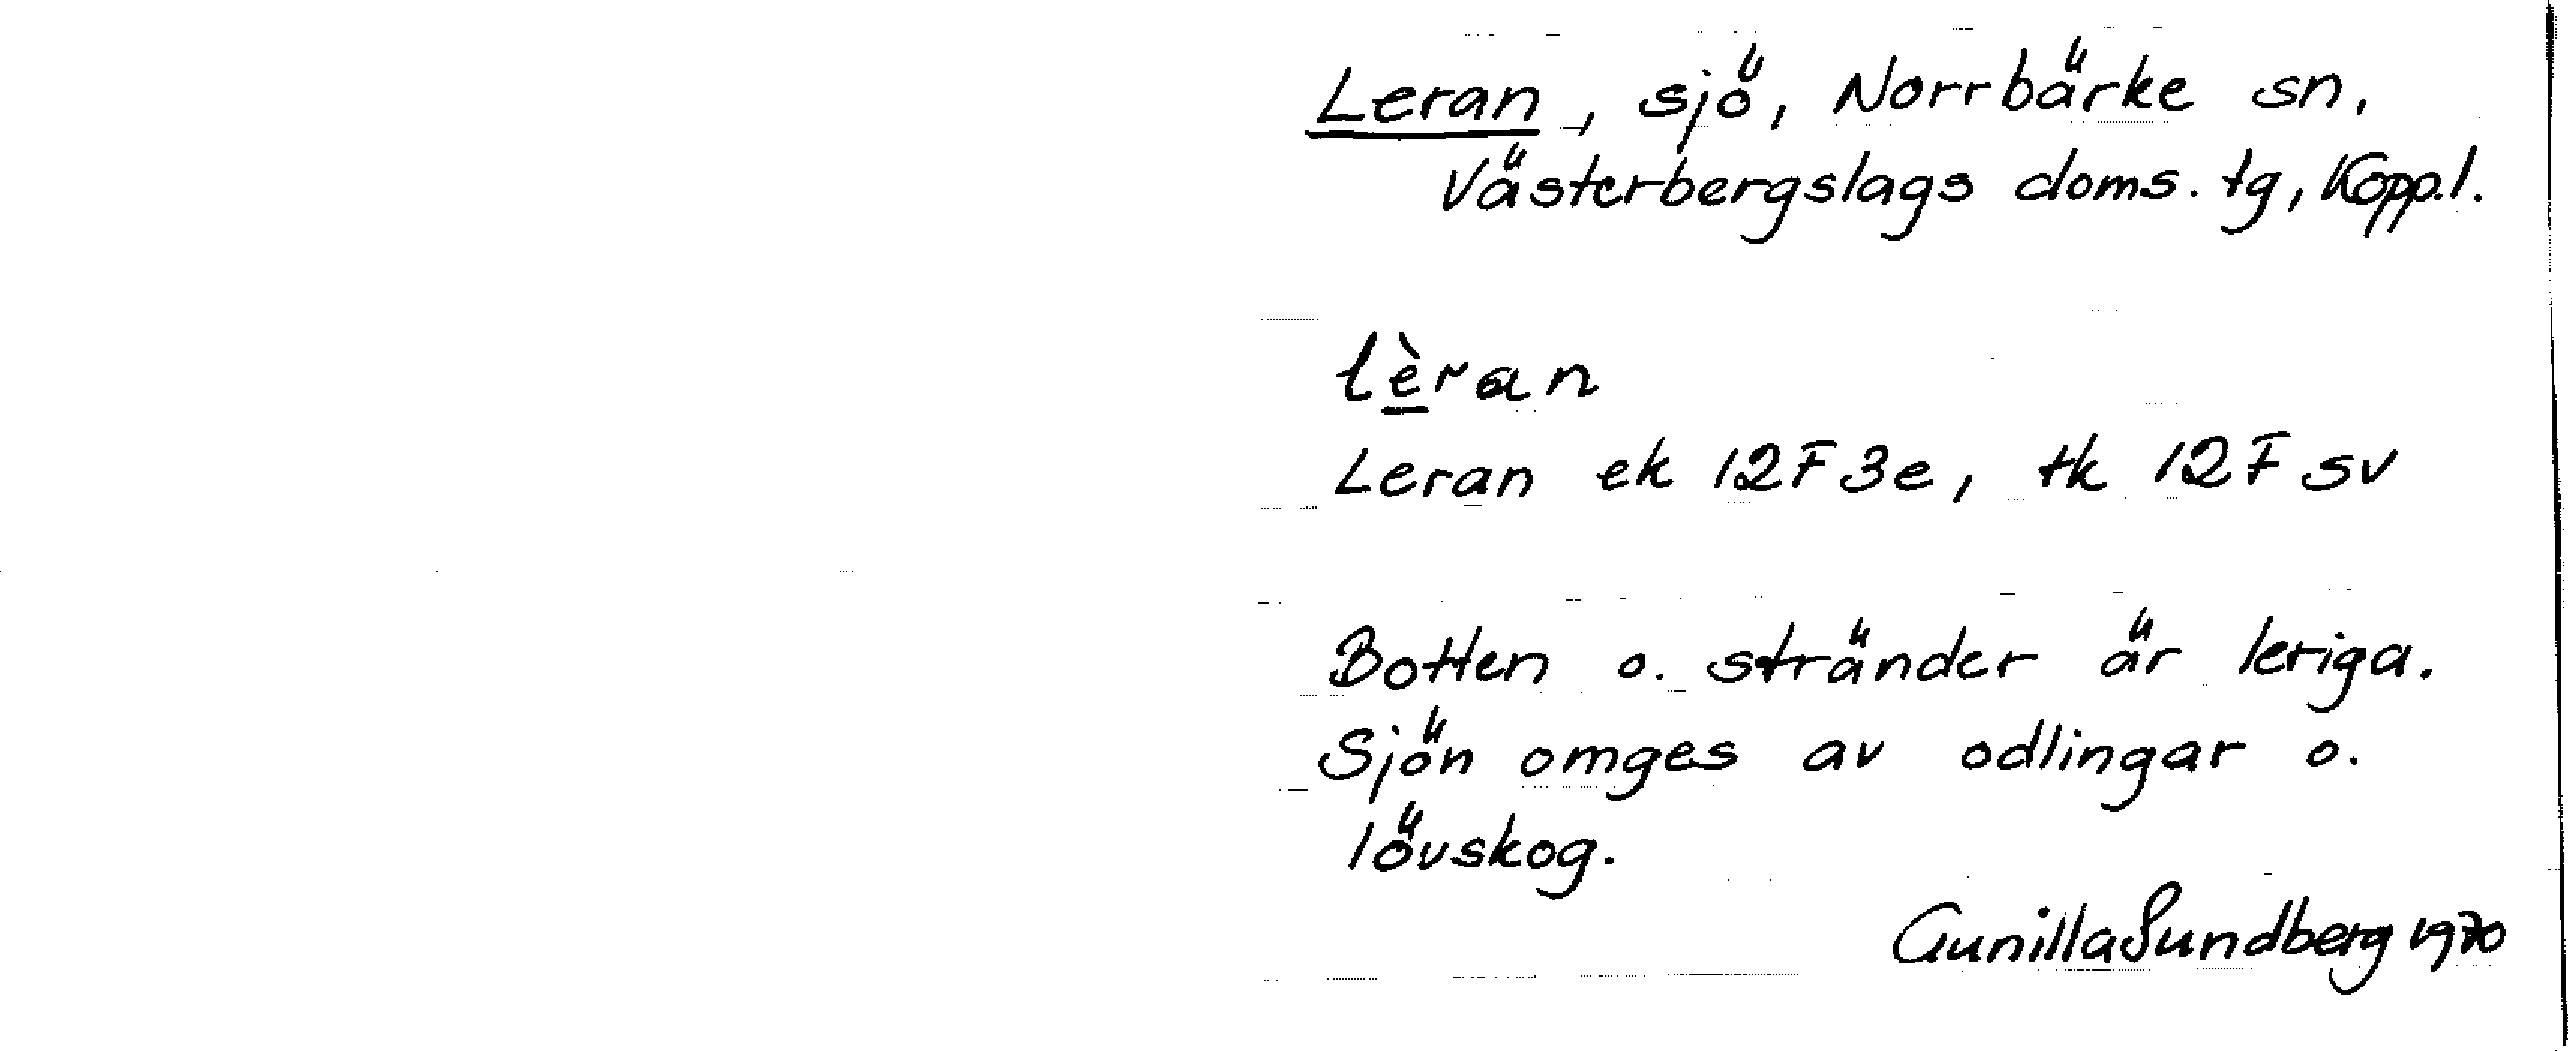 Leran, sjö, Norrbärke sn,
Västerbergslags doms. tg, Kopp.l.
lèran
Leran ek 12F3e, tk 12F sv
Botten o. stränder är leriga.
Sjön omges av odlingar o.
lövskog.
Gunilla Sundberg 1970